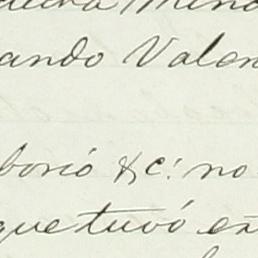 ando Valen
borió &c: no
que tuvó en